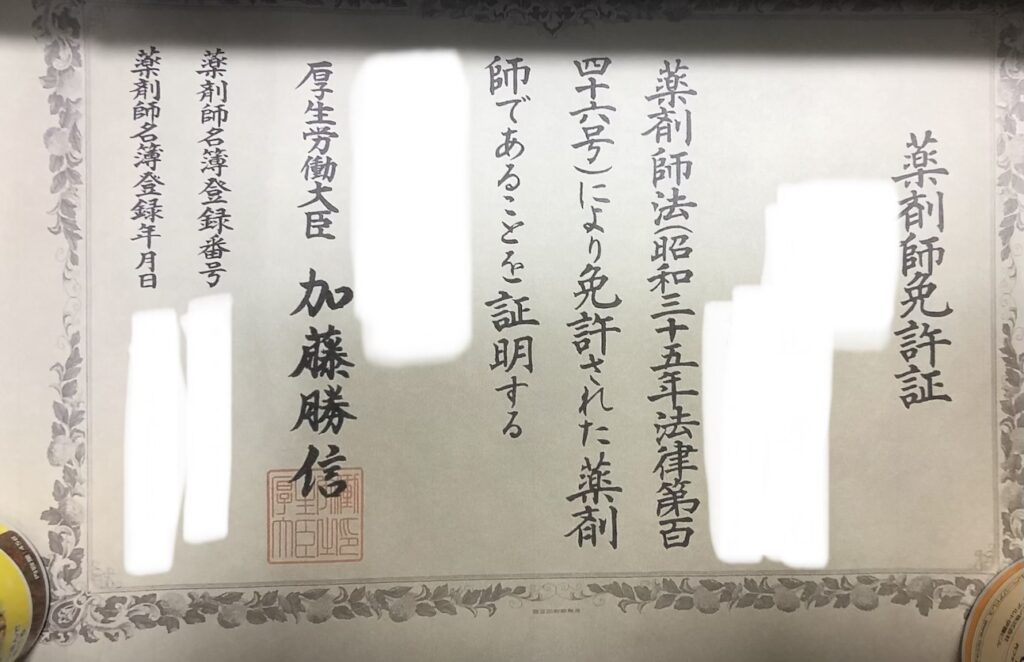 薬剤師免許証
薬剤師法(昭和三十五年法律第百
四十六号)により免許された薬剤
師であることを証明する
厚生労働大臣 加藤勝信
薬剤師名簿登録番号
薬剤師名簿登録年月日